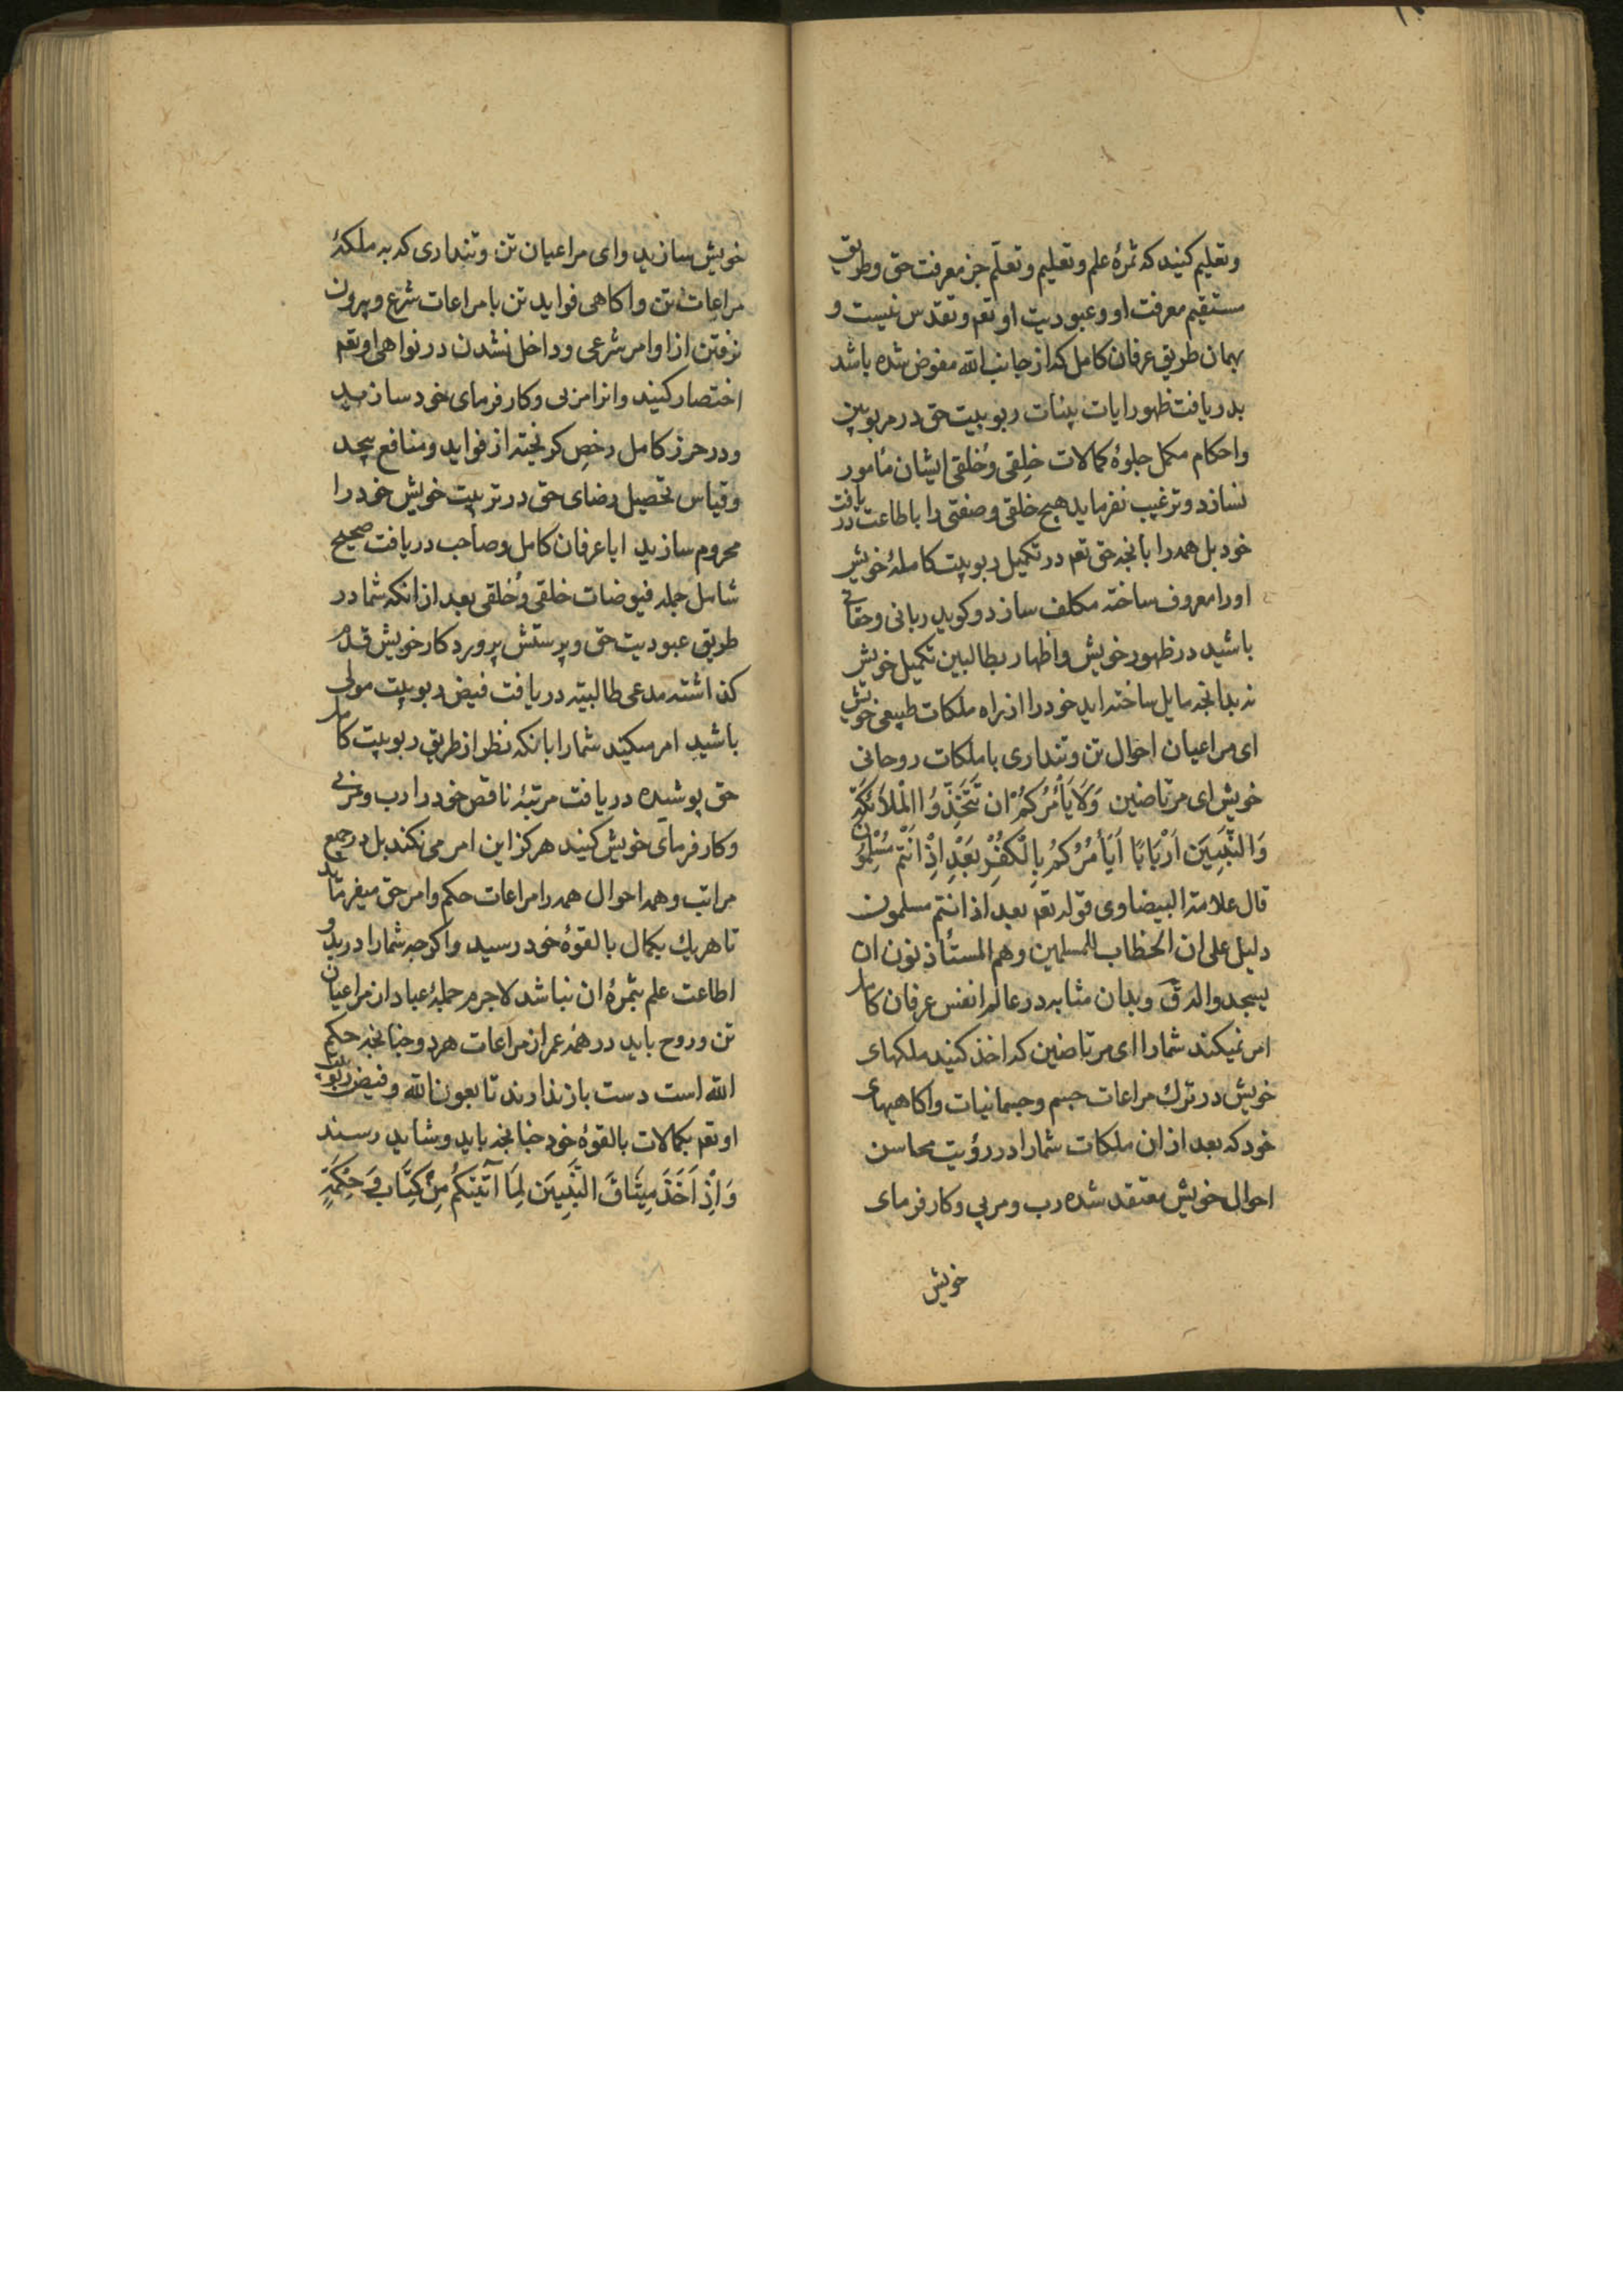 وتعلیم کنید که ثمرهٔ علم وتعلیم وتعلّم جز معرفت حق وطریق
مستقیم معرفت او وعبودیت او تعم وتقدس نیست و
بهمان طریق عرفان کامل که از جانب الله مفوض شده باشد
بدریافت ظهورایات بینات ربوبیت حق در مربوبین
واحکام مکمل جلوهٔ کمالات خِلقی وخُلقی ایشان مأمور
نسازد وترغیب نفرماید هیچ خلقی وصفتی را باطاعت دریافت
خود بل همه را بانجه حق تعم در تکمیل ربوبیت کاملهٔ خویش
اورا معروف ساخته مکلف سازد وکوید ربانی وحقانی
باشید در ظهور خویش واظهار بطالبین تکمیل خویش
نه بدانجه مایل ساخته اید خود را از راه ملکات طبیعی خویش
ای مراعیان احوال تن وتنداری با ملکات روحانی
خویش ای مرتاضین وَلَا یَأْمُرُکُمْ ان تَتَّخِذُوا الْمَلَائِکَةَ
وَالنَّبِیِّینَ اَرْبَابًا اَیَأْمُرُکُمْ بِالْکُفْرِ بَعْدَ اِذْ اَنْتُم مُسْلِمُون
قال علامة البیضاوی قوله تعم بعد اذ انتم مسلمون
دلیل علی ان الخطاب للمسلمین وهم المستأذنون ان
یسجدوا له ق وبدان مثابه در عالم انفس عرفان کامل
امر نمیکند شمارا ای مرتاضین که اخذ کنید ملکهای
خویش در ترک مراعات جسم وجسمانیات واکاهیهای
خود که بعد از ان ملکات شمارا در رؤیت محاسن
احوال خویش معتقد شده رب ومربی وکارفرمای
خویش
خویش سازید وای مراعیان تن وتنداری که به ملکهٔ
مراعات تن واکاهی فواید تن با مراعات شرع وبیرون
نرفتن از اوامر شرعی وداخل نشدن در نواهی او تعم
اختصار کنید وانرا مربی وکارفرمای خود سازید
ودر حرز کامل رخص کریخته از فواید ومنافع بیحد
وقیاس تحصیل رضای حق در تربیت خویش خود را
محروم سازید ایا عرفان کامل وصاحب دریافت صحیح
شامل جمله فیوضات خلقی وخُلقی بعد از انکه شما در
طریق عبودیت حق وپرستش پروردکار خویش قدم
کذاشته مدعی طالبیته دریافت فیض ربوبیت مولی
باشید امر میکند شمارا بانکه نظر از طریق ربوبیت کامل
حق پوشیده دریافت مرتبهٔ ناقص خود را رب ومربی
وکارفرمای خویش کنید هرکز این امر می نکند بل در جمیع
مراتب وهمه احوال همه را مراعات حکم وامر حق میفرماید
تا هریک بکمال بالقوهٔ خود رسید واکرچه شمارا در بدو
اطاعت علم بثمرهٔ ان نباشد لاجرم جملهٔ عباد از مراعیان
تن وروح باید در همه عمر از مراعات هردو چنانجه حکم
الله است دست باز ندارند تا بعون الله وفیض ربوبیت
او تعم بکمالات بالقوهٔ خود چنانجه باید وشاید رسند
وَاِذْ اَخَذَ مِیثَاقَ النَّبِیِّینَ لِمَا آتَیْتُکُم مِنْ کِتَابٍ وَحِکْمَةٍ